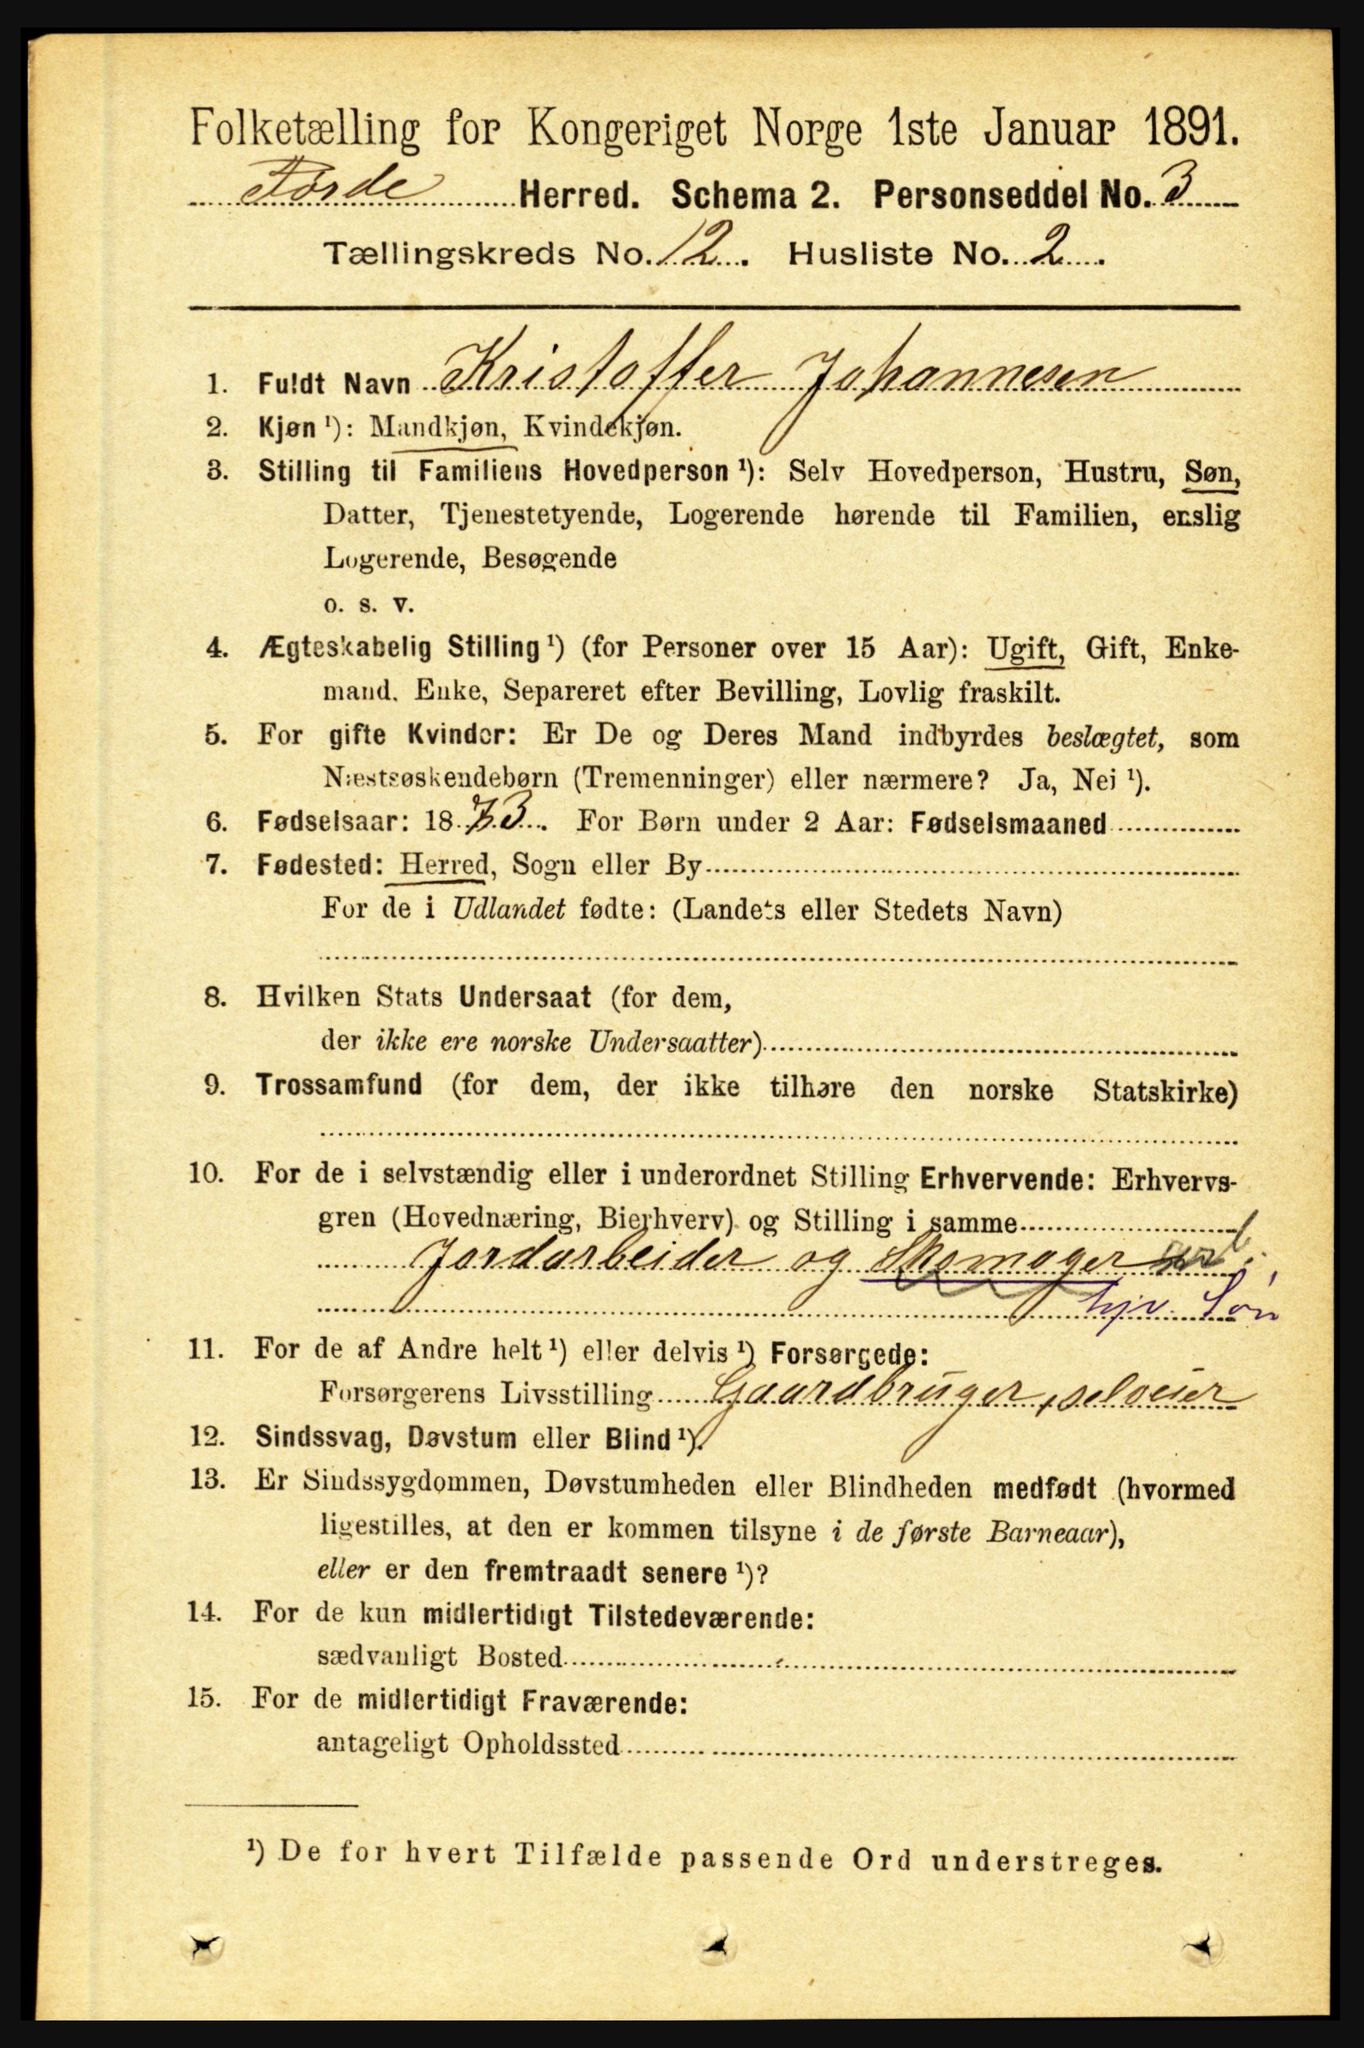 Folketælling for Kongeriget Norge 1ste Januar 1891.
Førde Herred. Schema 2. Personseddel No. 3
Tællingskreds No. 12. Husliste No. 2.
1. Fuldt Navn Kristoffer Johannesen
2. Kjøn ¹): Mandkjøn, Kvindekjøn.
3. Stilling til Familiens Hovedperson ¹): Selv Hovedperson, Hustru, Søn,
Datter, Tjenestetyende, Logerende hørende til Familien, enslig
Logerende, Besøgende
o. s. v.
4. Ægteskabelig Stilling ¹) (for Personer over 15 Aar): Ugift, Gift, Enke-
mand, Enke, Separeret efter Bevilling, Lovlig fraskilt.
5. For gifte Kvinder: Er De og Deres Mand indbyrdes beslægtet, som
Næstsøskendebørn (Tremenninger) eller nærmere? Ja, Nei ¹).
6. Fødselsaar: 1873. For Børn under 2 Aar: Fødselsmaaned
7. Fødested: Herred, Sogn eller By
For de i Udlandet fødte: (Landets eller Stedets Navn)
8. Hvilken Stats Undersaat (for dem,
der ikke ere norske Undersaatter)
9. Trossamfund (for dem, der ikke tilhøre den norske Statskirke)
10. For de i selvstændig eller i underordnet Stilling Erhvervende: Erhvervs-
gren (Hovednæring, Bierhverv) og Stilling i samme
Jordarbeider og Skomager
hjv. Søn
11. For de af Andre helt ¹) eller delvis ¹) Forsørgede:
Forsørgerens Livsstilling Gaardbruger, selveier
12. Sindssvag, Døvstum eller Blind ¹).
13. Er Sindssygdommen, Døvstumheden eller Blindheden medfødt (hvormed
ligestilles, at den er kommen tilsyne i de første Barneaar),
eller er den fremtraadt senere ¹)?
14. For de kun midlertidigt Tilstedeværende:
sædvanligt Bosted
15. For de midlertidigt Fraværende:
antageligt Opholdssted
¹) De for hvert Tilfælde passende Ord understreges.